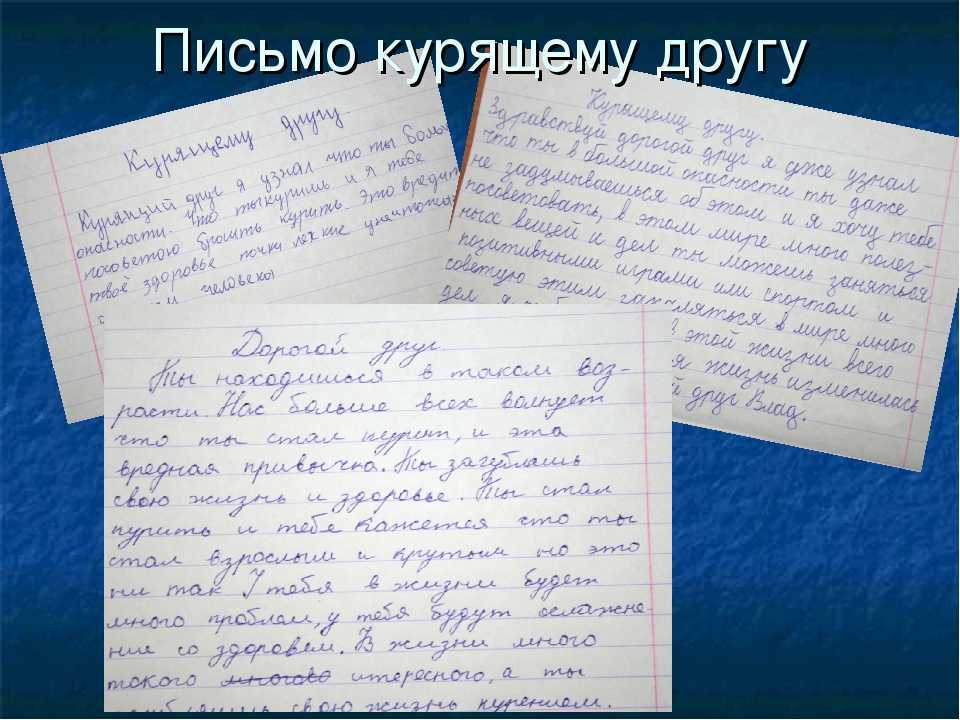 Письмо курящему другу
Курящему другу
Курящий друг я узнал что ты в
опасности. Что ты куришь и я тебе
посоветою бросить курить. Это вредит
твое здоровье почки лёхкие
человеки
Курящему другу.
Здравствуй дорогой друг я уже узнал
что ты в большой опасности ты даже
не задумываешься об этом и я хочу тебе
посоветовать, в этом мире много полез-
ных вещей и дел ты можешь заняться
позитивными играми или спортом и
советую этим в мире много
дел я
этой жизни всего
я жизнь изменилась
друг Влад.
Дорогой друг.
Ты находишься в таком воз-
расти. Нас больше всех волнует
что ты стал курит, и эта
вредная привычка. Ты загублашь
свою жизнь и здоровье. Ты стал
курить и тебе кажется что ты
стал взрослым и крутым но это
ни так У тебя в жизни будет
много проблем, у тебя будут осложне-
ние со здоровем. В жизни много
такого многово итересного, а ты
свою жизнь курением.